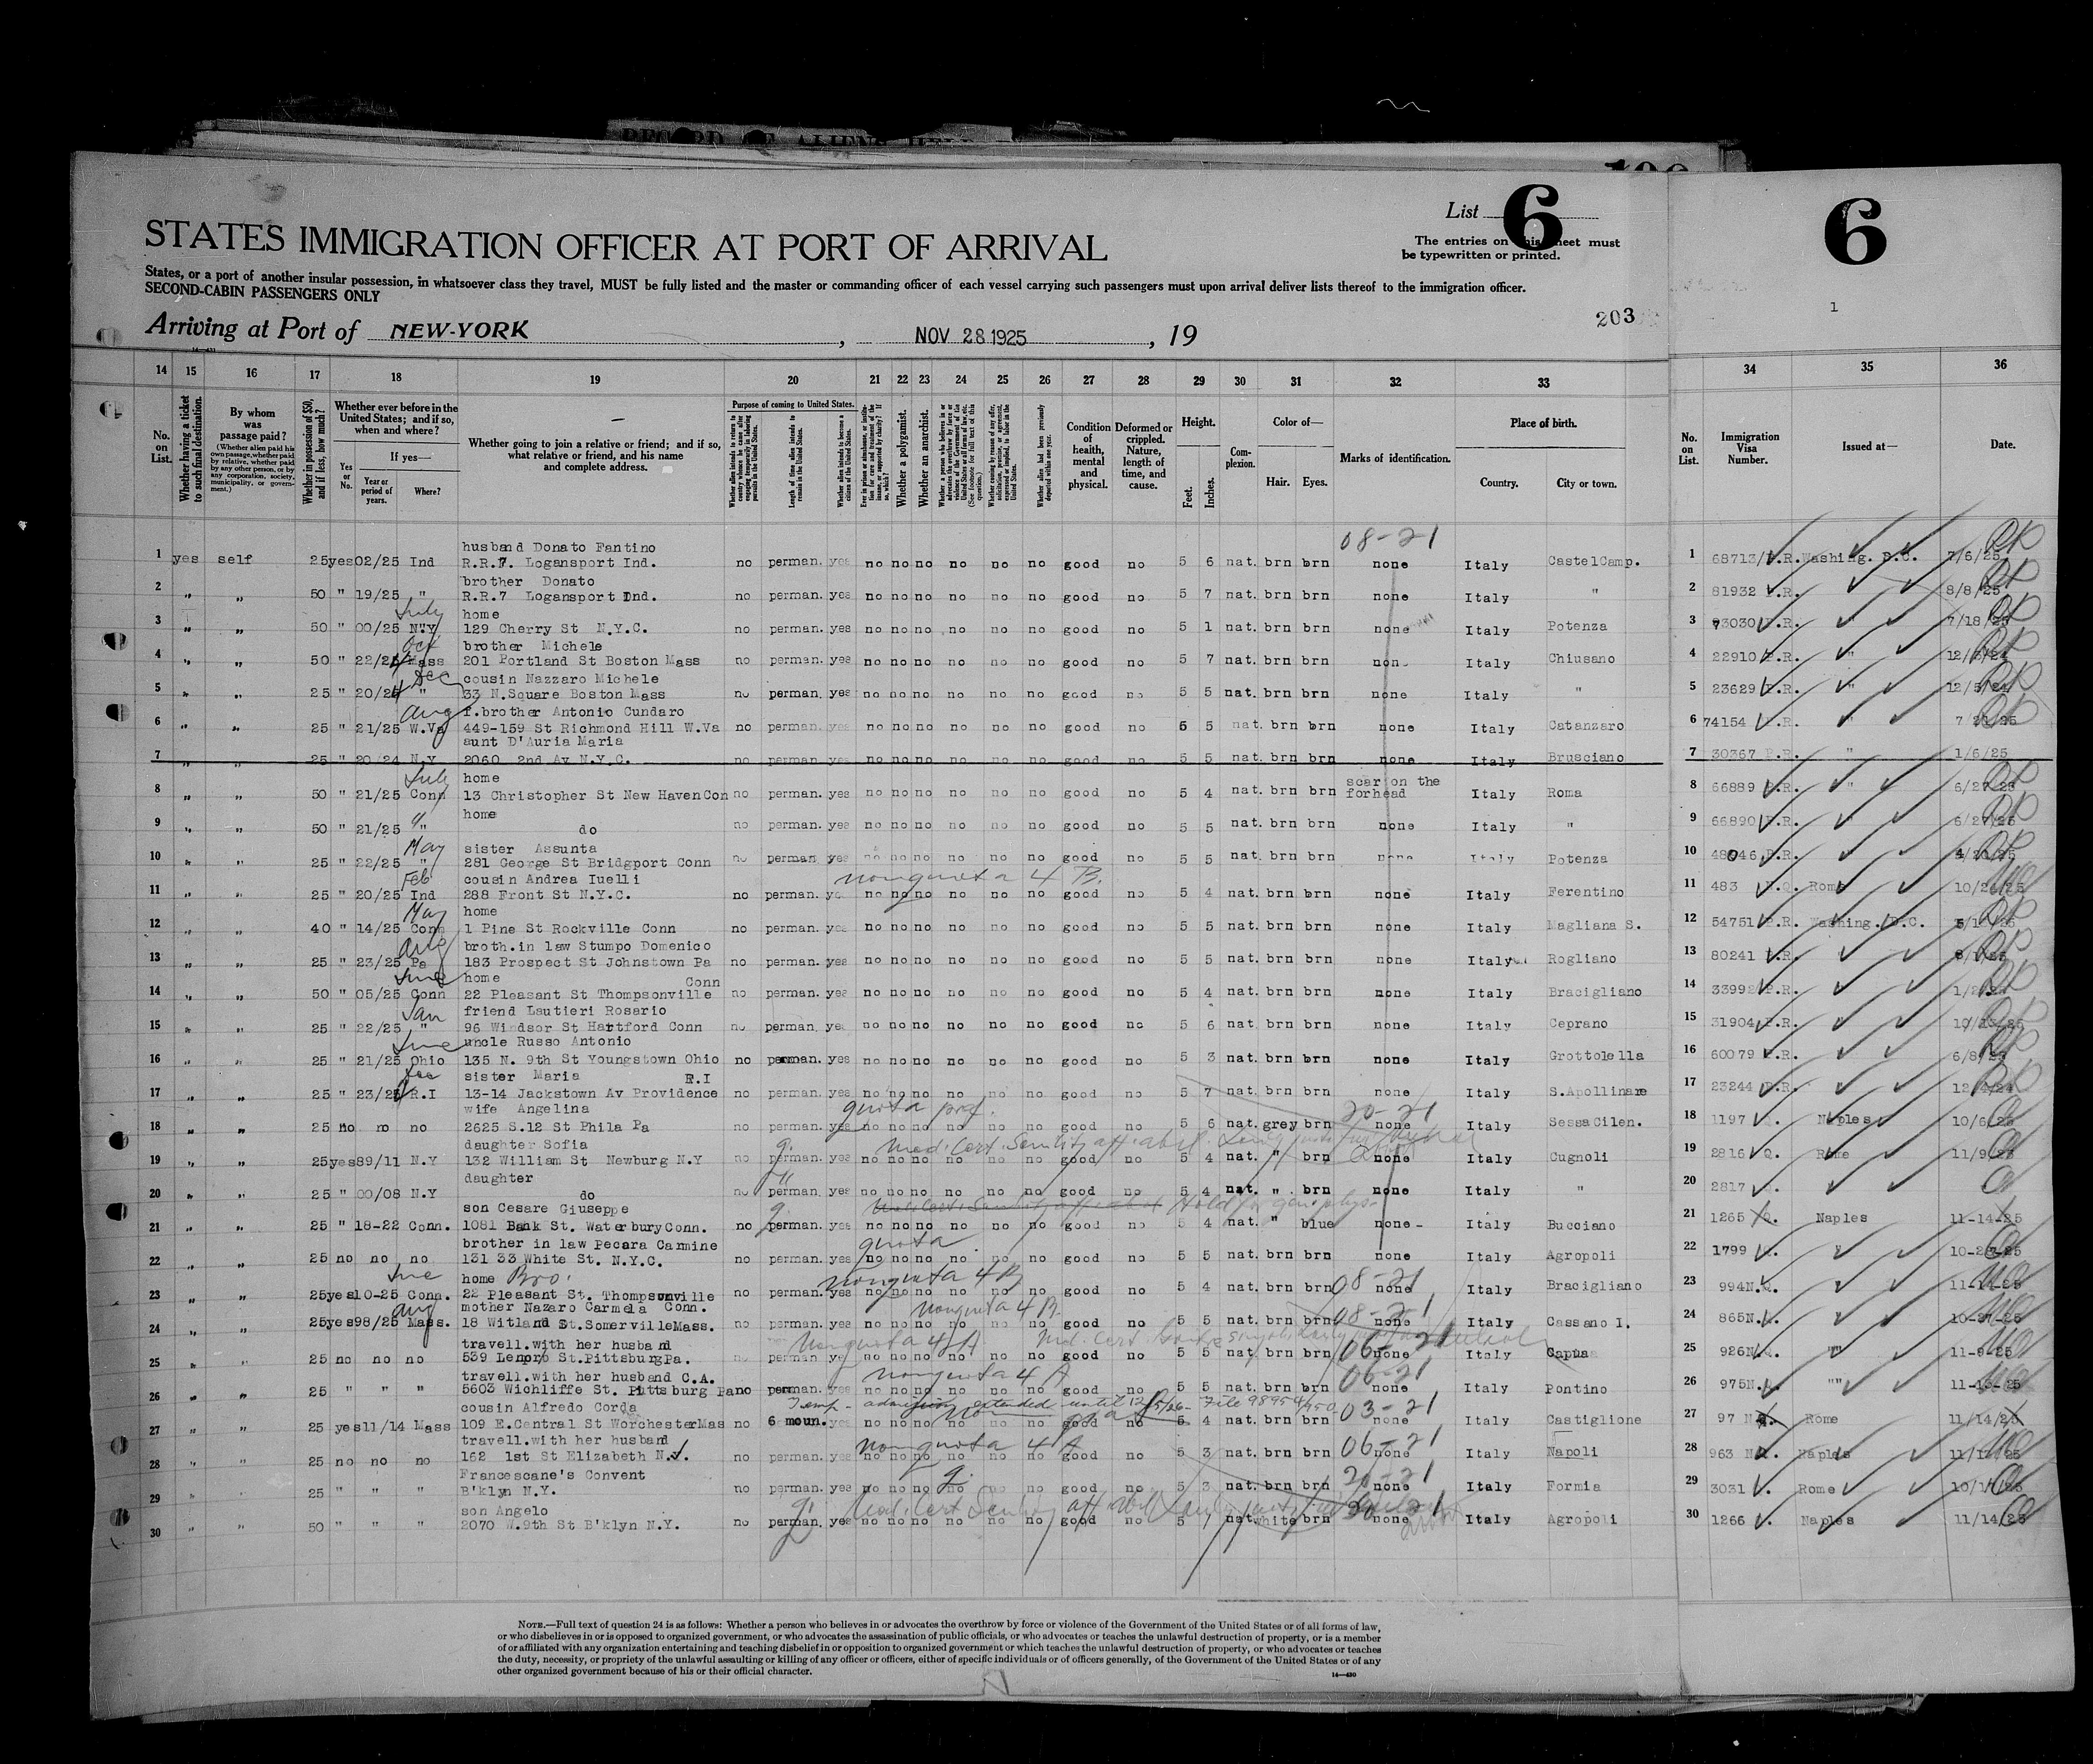 RECORD OF ALIENS HELD
List 6
6
STATES IMMIGRATION OFFICER AT PORT OF ARRIVAL
The entries on this sheet must
be typewritten or printed.
States, or a port of another insular possession, in whatsoever class they travel, MUST be fully listed and the master or commanding officer of each vessel carrying such passengers must upon arrival deliver lists thereof to the immigration officer.
SECOND-CABIN PASSENGERS ONLY
203
1
Arriving at Port of NEW-YORK, NOV 28 1925, 19
14 15 16 17 18 19 20 21 22 23 24 25 26 27 28 29 30 31 32 33 34 35 36
No. on List.
Whether having a ticket to such final destination.
By whom was passage paid?
(Whether alien paid his own passage, whether paid by relative, whether paid by any other person, or by any corporation, society, municipality, or government.)
Whether in possession of $50, and if less, how much?
Whether ever before in the United States; and if so, when and where?
Yes or No.
If yes—
Year or period of years.
Where?
Whether going to join a relative or friend; and if so, what relative or friend, and his name and complete address.
Purpose of coming to United States.
Whether alien intends to return to country whence he came after engaging temporarily in laboring pursuits in the United States.
Length of time alien intends to remain in the United States.
Whether alien intends to become a citizen of the United States.
Whether a polygamist.
Whether an anarchist.
Condition of health, mental and physical.
Deformed or crippled. Nature, length of time, and cause.
Height.
Feet.
Inches.
Complexion.
Color of—
Hair.
Eyes.
Marks of identification.
Place of birth.
Country.
City or town.
No. on List.
Immigration Visa Number.
Issued at—
Date.
08-21
husband Donato Fantino
1 yes self 25 yes 02/25 Ind R.R.7. Logansport Ind. no perman. yes no no no no no no good no 5 6 nat. brn brn none Italy CastelCamp. 1 68713/P.R. Washing. D.C. 7/6/25
brother Donato
2 " " 50 " 19/25 " R.R.7 Logansport Ind. no perman. yes no no no no no no good no 5 7 nat. brn brn none Italy " 2 81932 P.R. " 8/8/25
July home
3 " " 50 " 00/25 N.Y 129 Cherry St N.Y.C. no perman. yes no no no no no no good no 5 1 nat. brn brn none Italy Potenza 3 73030 P.R. " 7/18/25
Oct brother Michele
4 " " 50 " 22/24 Mass 201 Portland St Boston Mass no perman. yes no no no no no no good no 5 7 nat. brn brn none Italy Chiusano 4 22910 P.R. "
Dec cousin Nazzaro Michele
5 " " 25 " 20/24 " 33 N.Square Boston Mass no perman. yes no no no no no no good no 5 5 nat. brn brn none Italy " 5 23629 P.R. " 12/5/24
Aug f.brother Antonio Cundaro
6 " " 25 " 21/25 W.Va 449-159 St Richmond Hill W.Va no perman. yes no no no no no no good no 5 5 nat. brn brn none Italy Catanzaro 6 74154 P.R. "
aunt D'Auria Maria
7 " " 25 " 20/24 N.Y 2060 2nd Av N.Y.C. no perman. yes no no no no no no good no 5 5 nat. brn brn none Italy Brusciano 7 30367 P.R. " 1/6/25
July home scar on the
8 " " 50 " 21/25 Conn 13 Christopher St New HavenCon no perman. yes no no no no no no good no 5 4 nat. brn brn forhead Italy Roma 8 66889 P.R. "
home
9 " " 50 " 21/25 " do no perman. yes no no no no no no good no 5 5 nat. brn brn none Italy " 9 66890 P.R. 6/27/25
May sister Assunta
10 " " 25 " 22/25 " 281 George St Bridgport Conn no perman. yes no no no no no no good no 5 5 nat. brn brn none Italy Potenza 10 48046 P.R.
Feb cousin Andrea Iuelli nonquota 4 B.
11 " " 25 " 20/25 Ind 288 Front St N.Y.C. no perman. yes no no no no no no good no 5 4 nat. brn brn none Italy Ferentino 11 483 N.Q. Rome
May home
12 " " 40 " 14/25 Conn 1 Pine St Rockville Conn no perman. yes no no no no no no good no 5 5 nat. brn brn none Italy Magliana S. 12 54751 P.R. Washing. D.C.
Aug broth.in law Stumpo Domenico
13 " " 25 " 23/25 Pa 183 Prospect St Johnstown Pa no perman. yes no no no no no no good no 5 5 nat. brn brn none Italy Rogliano 13 80241 P.R.
June home Conn
14 " " 50 " 05/25 Conn 22 Pleasant St Thompsonville no perman. yes no no no no no no good no 5 4 nat. brn brn none Italy Bracigliano 14 33992 P.R.
Jan friend Lautieri Rosario
15 " " 25 " 22/25 " 96 Windsor St Hartford Conn no perman. yes no no no no no no good no 5 6 nat. brn brn none Italy Ceprano 15 31904 P.R.
June uncle Russo Antonio
16 " " 25 " 21/25 Ohio 135 N. 9th St Youngstown Ohio no perman. yes no no no no no no good no 5 3 nat. brn brn none Italy Grottolella 16 60079 P.R.
Dec sister Maria R.I
17 " " 25 " 23/24 R.I 13-14 Jackstown Av Providence no perman. yes no no no no no no good no 5 7 nat. brn brn none Italy S.Apollinare 17 23244 P.R.
wife Angelina quota pref. 20-21
18 " " 25 no no no 2625 S.12 St Phila Pa no perman. yes no no no no no no good no 5 6 nat. grey brn none Italy SessaCilen. 18 1197 Naples 10/6/25
daughter Sofia q. Med. Cert. Senility aff. abil.
19 " " 25 yes 89/11 N.Y 132 William St Newburg N.Y no perman. yes no no no no no no good no 5 4 nat. " brn none Italy Cugnoli 19 2816 Q. Rome
daughter
20 " " 25 " 00/08 N.Y do no perman. yes no no no no no no good no 5 4 nat. " brn none Italy " 20 2817
son Cesare Giuseppe q. Hold for
21 " " 25 " 18-22 Conn. 1081 Bank St. WaterburyConn. no perman. yes no no no no no no good no 5 4 nat. " blue none Italy Bucciano 21 1265 Q. Naples 11-14-25
brother in law Pecara Carmine quota
22 " " 25 no no no 131 33 White St. N.Y.C. no perman. yes no no no no no no good no 5 5 nat. brn brn none Italy Agropoli 22 1799 "
June home Bro. nonquota 4 B 08-21
23 " " 25 yes 10-25 Conn. 22 Pleasant St. Thompsonville no perman. yes no no no no no no good no 5 4 nat. brn brn none Italy Bracigliano 23 994N.Q.
Aug mother Nazaro Carmela Conn. nonquota 4 B. 08-21
24 " " 25 yes 98/25 Mass. 18 Witland St.SomervilleMass. no perman. yes no no no no no no good no 5 5 nat. brn brn none Italy Cassano I. 24 865N.
travell.with her husband nonquota 4 A Med. Cert. 06-21
25 " " 25 no no no 539 St.PittsburgPa. no perman. yes no no no no no no good no 5 5 nat. brn brn none Italy Capua 25 926N. "" 11-9-25
travell.with her husband C.A. nonquota 4 A 06-21
26 " " 25 " " " 5603 Wichliffe St. Pittsburg Pa no perman. yes no no no no no no good no 5 5 nat. brn brn none Italy Pontino 26 975N. ""
cousin Alfredo Corda Temp. admission extended until File 03-21
27 " " 25 yes 11/14 Mass 109 E.Central St WorchesterMas no 6 moun. yes no no no no no no good no 5 4 nat. brn brn none Italy Castiglione 27 97 Rome 11/14/25
travell.with her husband nonquota 4 A 06-21
28 " " 25 no no no 162 1st St Elizabeth N.J. no perman. yes no no no no no no good no 5 3 nat. brn brn none Italy Napoli 28 963 Naples
Francescane's Convent q. 20-21
29 " " 25 " " " B'klyn N.Y. no perman. yes no no no no no no good no 5 3 nat. brn brn none Italy Formia 29 3031 Rome
son Angelo q. Med. Cert Senility aff. abil
30 " " 50 " " " 2070 W.9th St B'klyn N.Y. no perman. yes no no no no no no good no 5 nat. white brn none Italy Agropoli 30 1266 Naples 11/14/25
NOTE.—Full text of question 24 is as follows: Whether a person who believes in or advocates the overthrow by force or violence of the Government of the United States or of all forms of law,
or who disbelieves in or is opposed to organized government, or who advocates the assassination of public officials, or who advocates or teaches the unlawful destruction of property, or is a member
of or affiliated with any organization entertaining and teaching disbelief in or opposition to organized government or which teaches the unlawful destruction of property, or who advocates or teaches
the duty, necessity, or propriety of the unlawful assaulting or killing of any officer or officers, either of specific individuals or of officers generally, of the Government of the United States or of any
other organized government because of his or their official character.
14—430